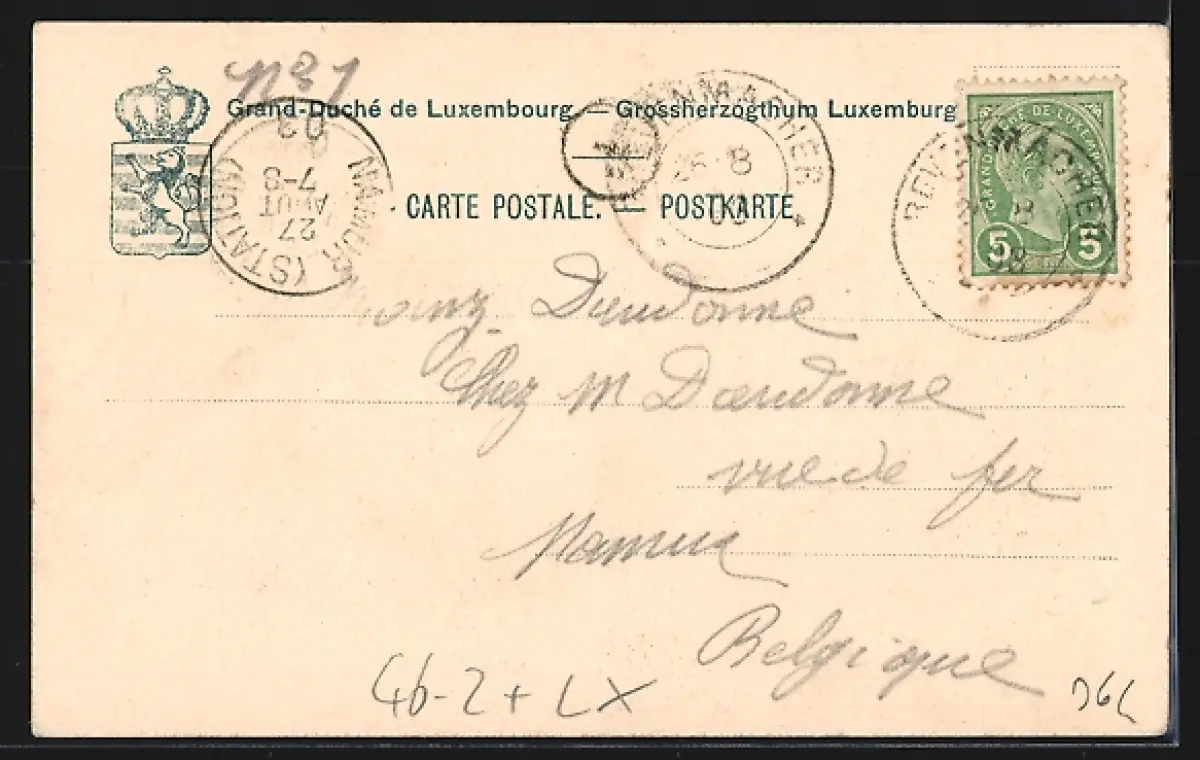 Nº 1
Grand-Duché de Luxembourg — Grossherzogthum Luxemburg
CARTE POSTALE. — POSTKARTE.
NAMUR (STATION)
27
AOUT
7-8
03
GREVENMACHER
26 8
03
GREVENMACHER
8
GRAND DUCHE DE LUXEMBOURG
5 5
Dieudonné
Chez M Dieudonné
rue de fer
Namur
Belgique
46-2 + LX